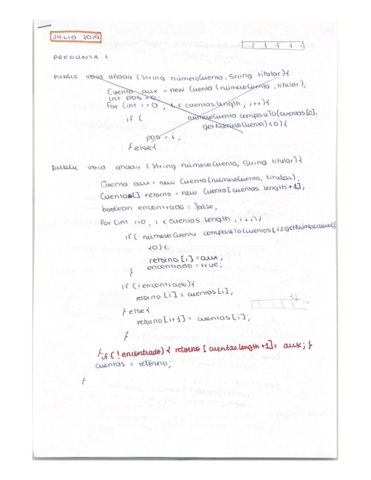 JULIO 2019
PREGUNTA 1
public void añadir (String númeroCuenta, String titular){
Cuenta aux = new Cuenta (númeroCuenta, titular);
int pos = 0;
for (int i=0, i < cuentas.length, i++){
if ( númeroCuenta.compareTo(cuentas[i].
getNúmeroCuenta()<0){
pos = i;
}else{
public void añadir (String númeroCuenta, String titular){
Cuenta aux = new Cuenta (númeroCuenta, titular);
Cuenta[] retorno = new Cuenta [cuentas.length+1];
boolean encontrado = false;
for (int i=0, i < cuentas.length, i++){
if( númeroCuenta.compareTo(cuentas[i].getNúmeroCuenta()
<0){
retorno[i]=aux;
encontrado = true;
}
if (!encontrado){
retorno[i] = cuentas[i];
}else{
retorno[i+1] = cuentas[i];
}
}if (!encontrado){ retorno [cuentas.length+1]= aux; }
cuentas = retorno;
}